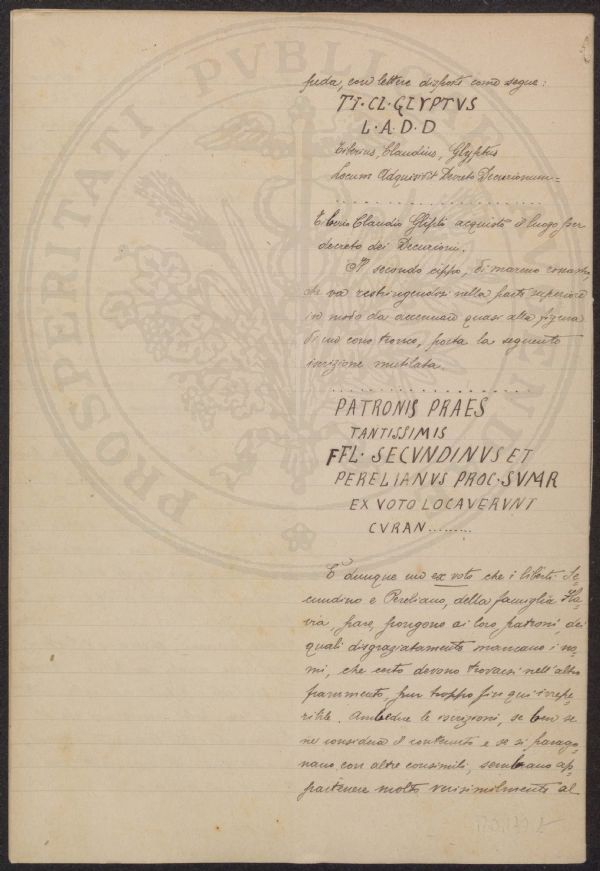 POSTERITATI PVBLICAE
feda, con lettere disposte come segue:
TI·CL·GLYPTVS
L·A·D·D
Tiberius, Claudius, Glyptus
Locum Adquivit Decreto Decurionum=
Tiberio Claudio Glipto acquistò il luogo per
decreto dei Decurioni.
Il secondo cippo, di marmo
che va restringendosi nella parte superiore
in modo da accennare quasi alla figura
di un cono tronco, porta la seguente
iscrizione mutilata.
PATRONIS PRAES
TANTISSIMIS
FFL· SECVNDINVS ET
PERELIANVS PROC·SVMR
EX VOTO LOCAVERVNT
CVRAN.........
È dunque un ex voto che i liberti Se=
cundino e Pereliano, della famiglia Fla=
via, pare, pongono ai loro patroni, dei
quali disgraziatamente mancano i no=
mi, che certo devono trovarsi nell'altro
frammento, pur troppo fin qui irrepe=
ribile. Ambedue le iscrizioni, se ben se
ne considera il contenuto e se si parago=
nano con altre consimili, sembrano ap=
partenere molto verisimilmente al